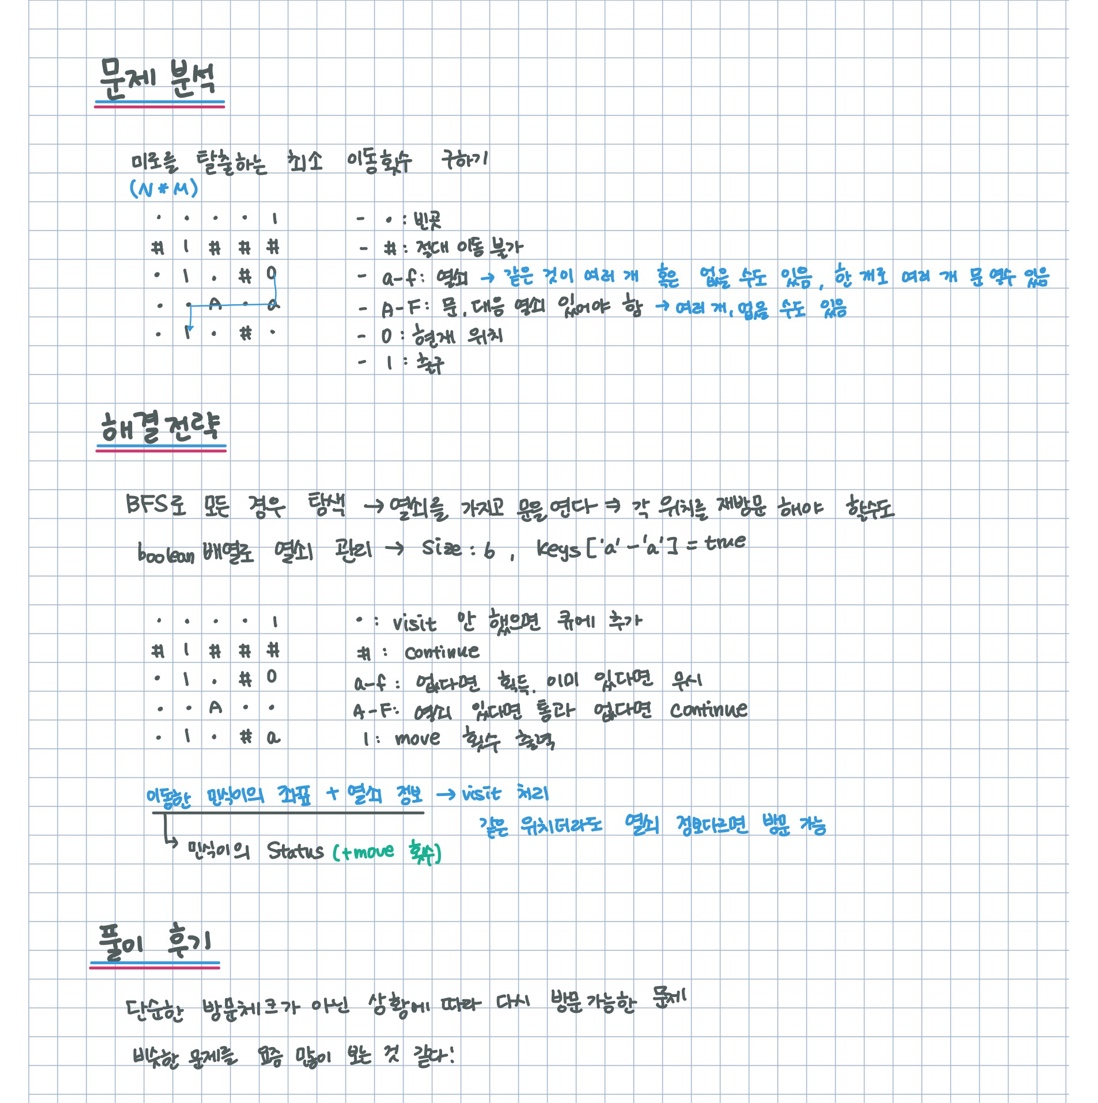 문제 분석
미로를 탈출하는 최소 이동횟수 구하기
(N * M)
· · · · 1 - · : 빈곳
# 1 # # # - # : 절대 이동 불가
· 1 · # 0 - a-f : 열쇠 → 같은 것이 여러 개 혹은 없을 수도 있음, 한 개로 여러 개 문 열수 있음
· · A · a - A-F : 문, 대응 열쇠 있어야 함 → 여러 개, 없을 수도 있음
· 1 · # · - 0 : 현재 위치
- 1 : 출구
해결 전략
BFS로 모든 경우 탐색 → 열쇠을 가지고 문을 연다 ⇒ 각 위치를 재방문 해야 할수도
boolean 배열로 열쇠 관리 → size : 6 , keys['a'-'a'] = true
· · · · 1 · : visit 안 했으면 큐에 추가
# 1 # # # # : continue
· 1 · # 0 a-f : 없다면 획득, 이미 있다면 무시
· · A · · A-F: 열쇠 있다면 통과 없다면 continue
· 1 · # a 1 : move 횟수 출력
이동한 민식이의 좌표 + 열쇠 정보 → visit 처리
같은 위치더라도 열쇠 정보다르면 방문 가능
↳ 민식이의 Status (+move 횟수)
풀이 후기
단순한 방문체크가 아닌 상황에 따라 다시 방문가능한 문제
비슷한 문제를 요즘 많이 보는 것 같다!